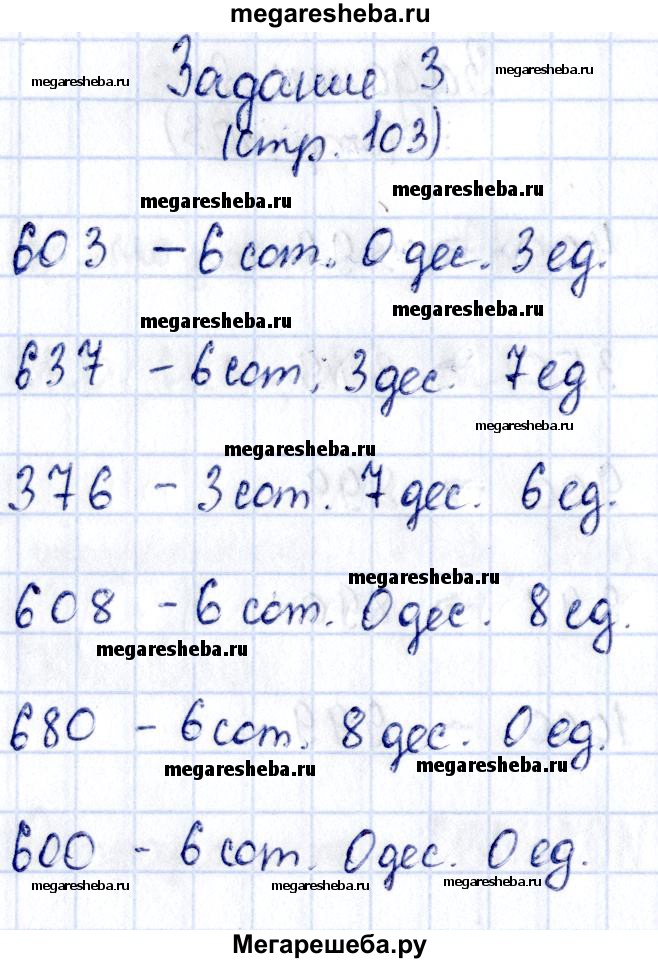 megaresheba.ru
Задание 3
megaresheba.ru
megaresheba.ru
(стр. 103)
megaresheba.ru
megaresheba.ru
603 – 6 сот. 0 дес. 3 ед.
megaresheba.ru
megaresheba.ru
637 – 6 сот. 3 дес. 7 ед
megaresheba.ru
megaresheba.ru
376 – 3 сот. 7 дес. 6 ед.
megaresheba.ru
608 – 6 сот. 0 дес. 8 ед.
megaresheba.ru
680 – 6 сот. 8 дес. 0 ед.
megaresheba.ru
megaresheba.ru
600 – 6 сот. 0 дес. 0 ед.
megaresheba.ru
megaresheba.ru
megaresheba.ru
Мегарешеба.ру